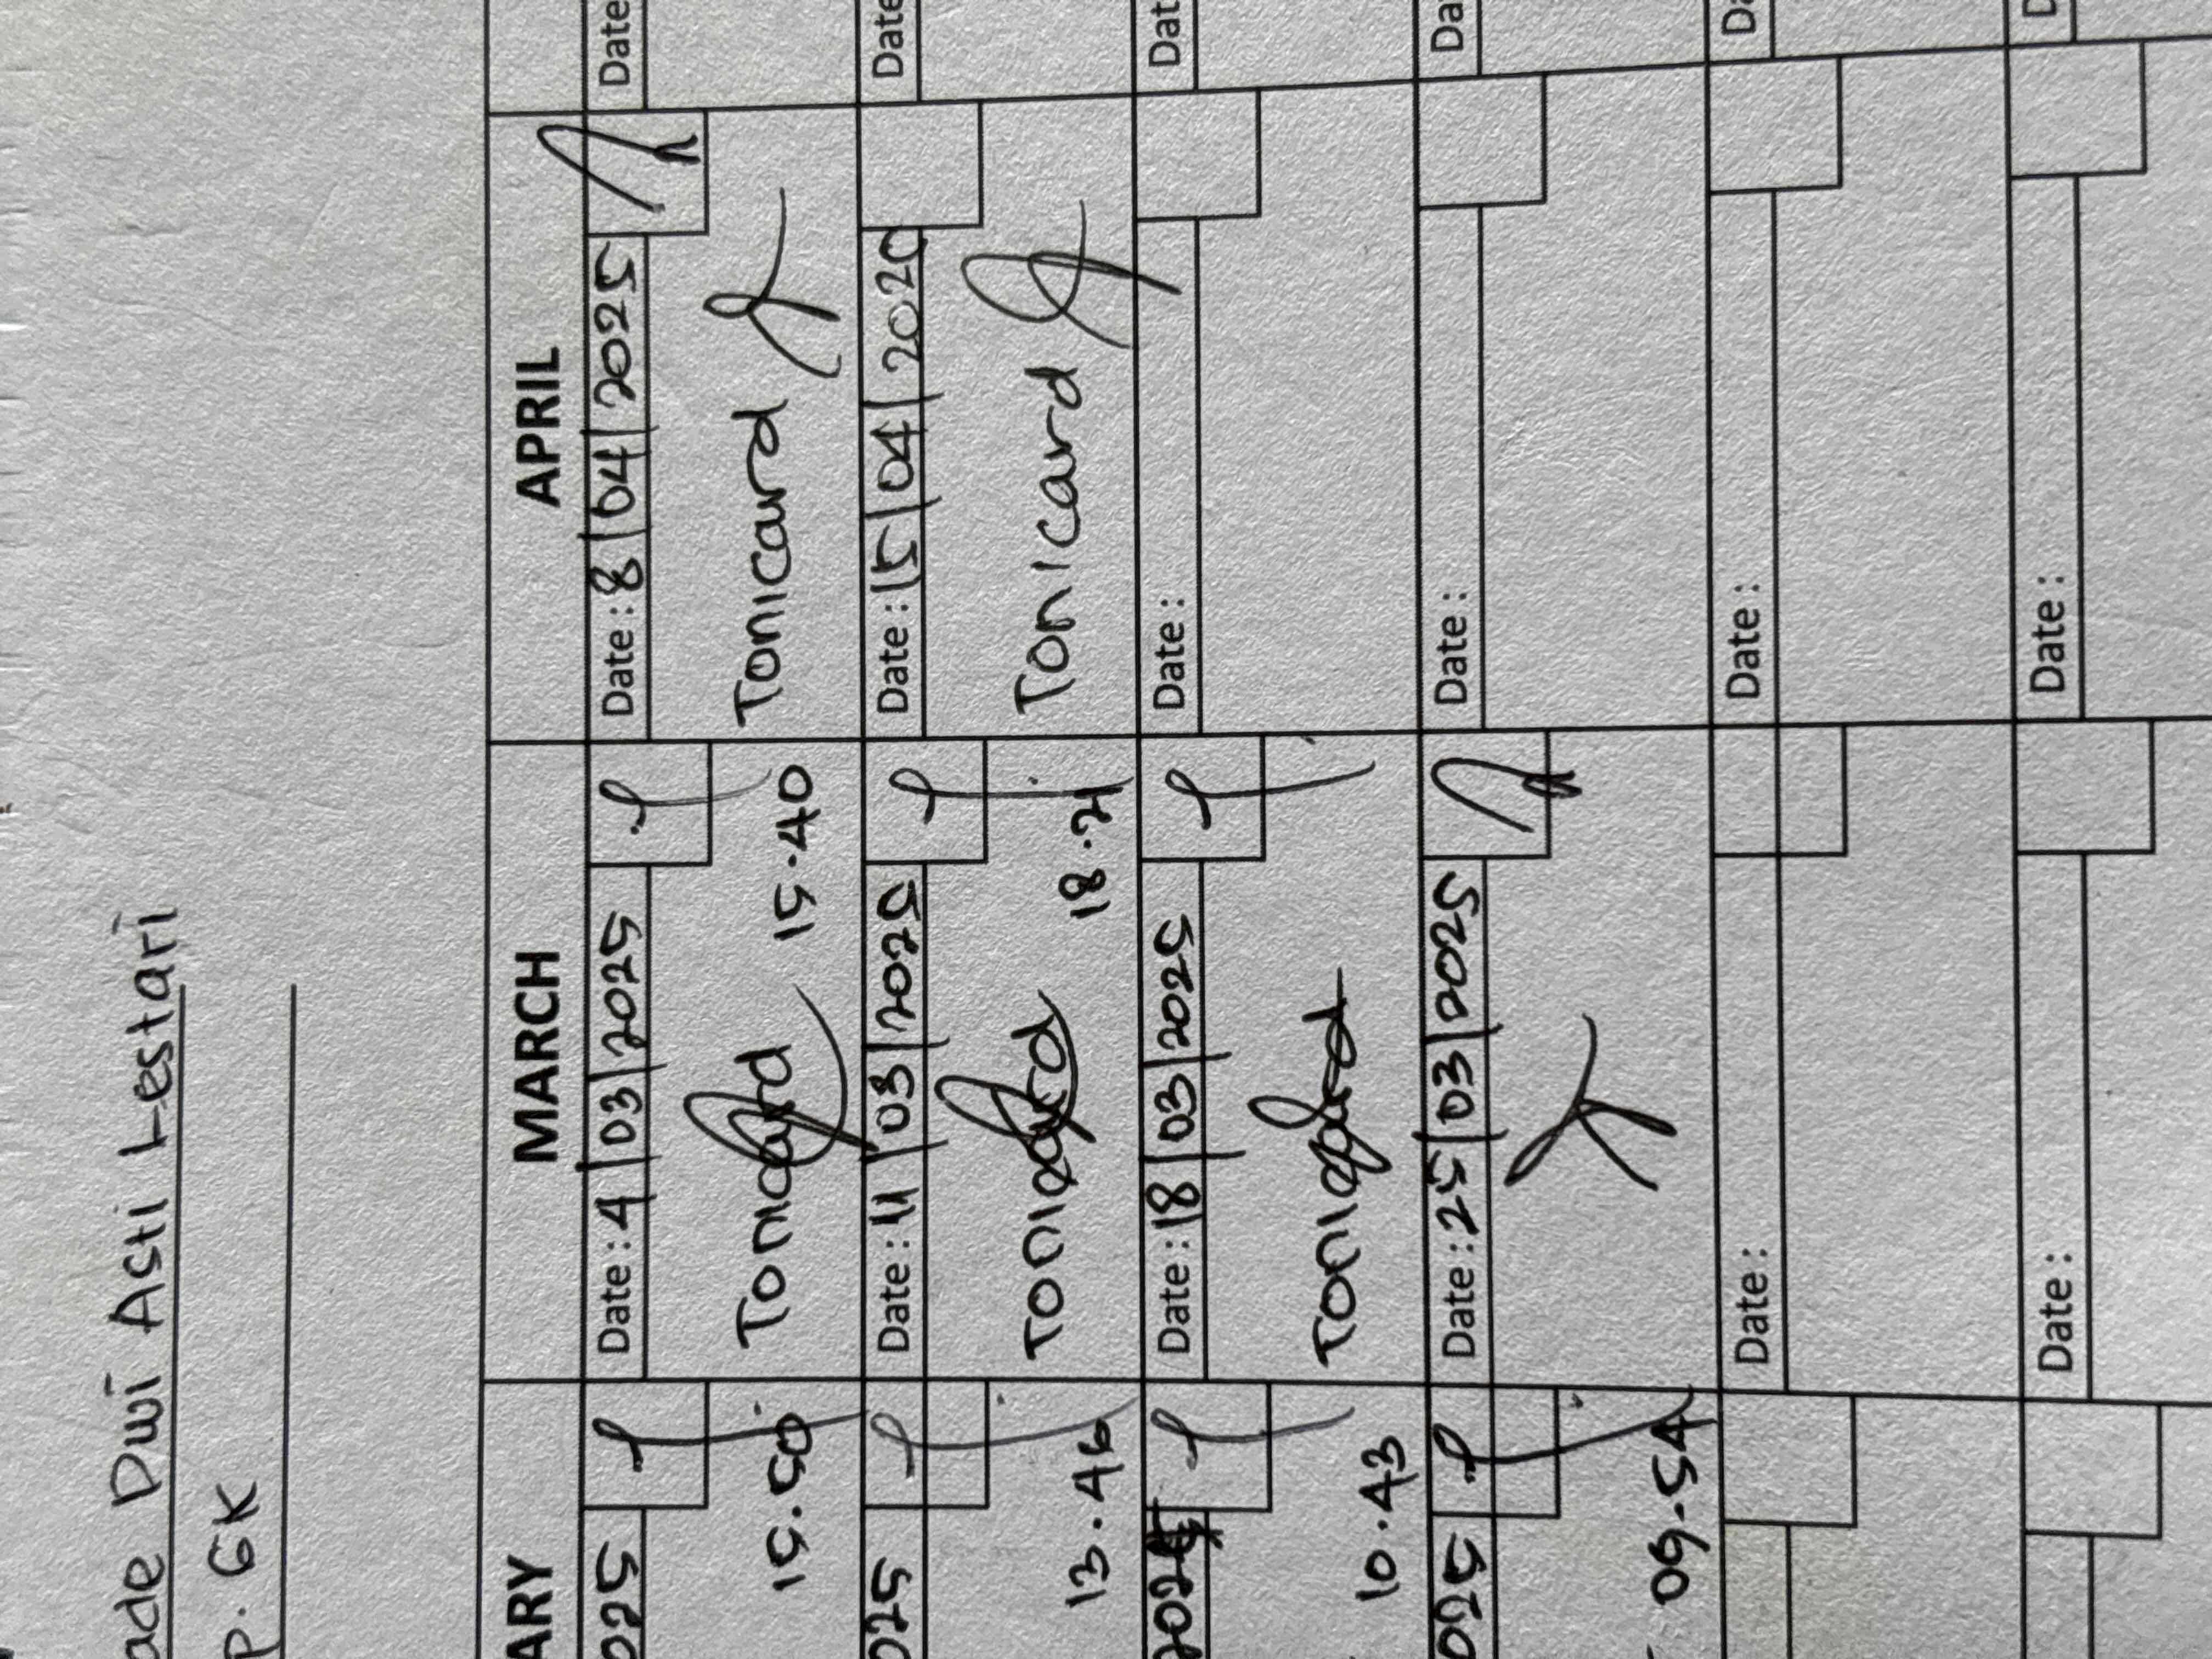 ade Dwi Asti Lestari
P. GK
ARY MARCH APRIL
025 Date : 4 | 03 | 2025 Date : 8 | 04 | 2025 Date
15.50 Tonicard 15.40 Tonicard
025 Date : 11 | 03 | 2025 Date : 15 | 04 | 202 Date
13.46 Tonicard 18.21 Tonicard
2025 Date : 18 | 03 | 2025 Date : Dat
10.43 Tonicard
025 Date : 25 | 03 | 2025 Date : Da
09.54
Date : Date : Da
Date : Date : D